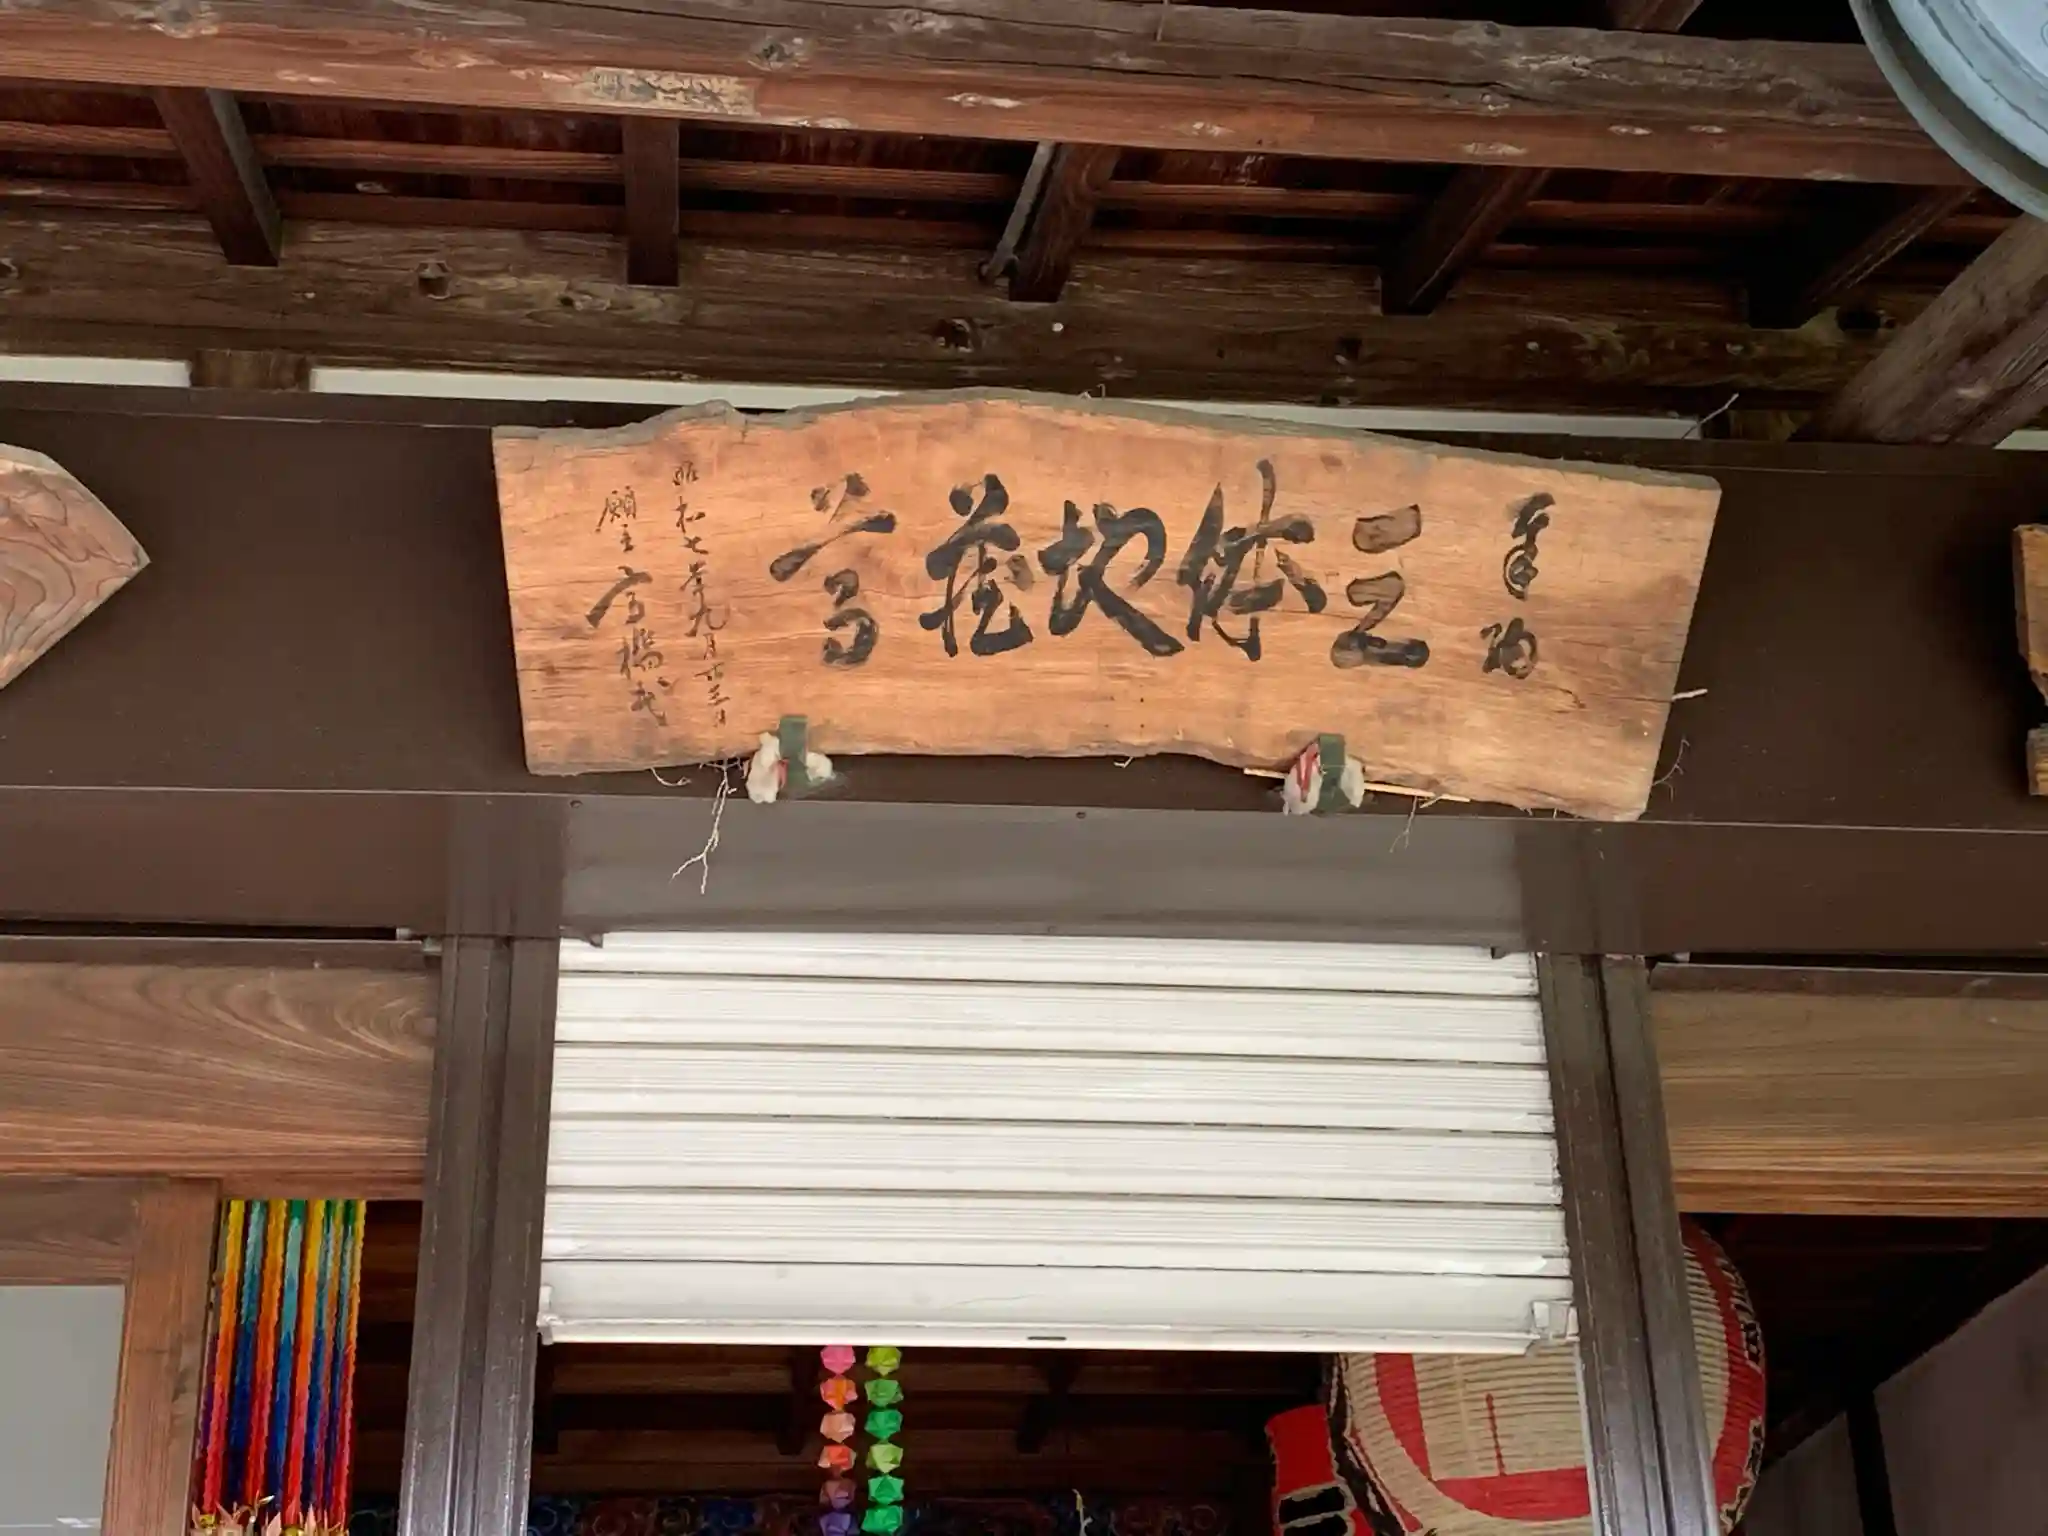 奉納
三体地蔵尊
昭和七年九月廿三日
願主 高橋